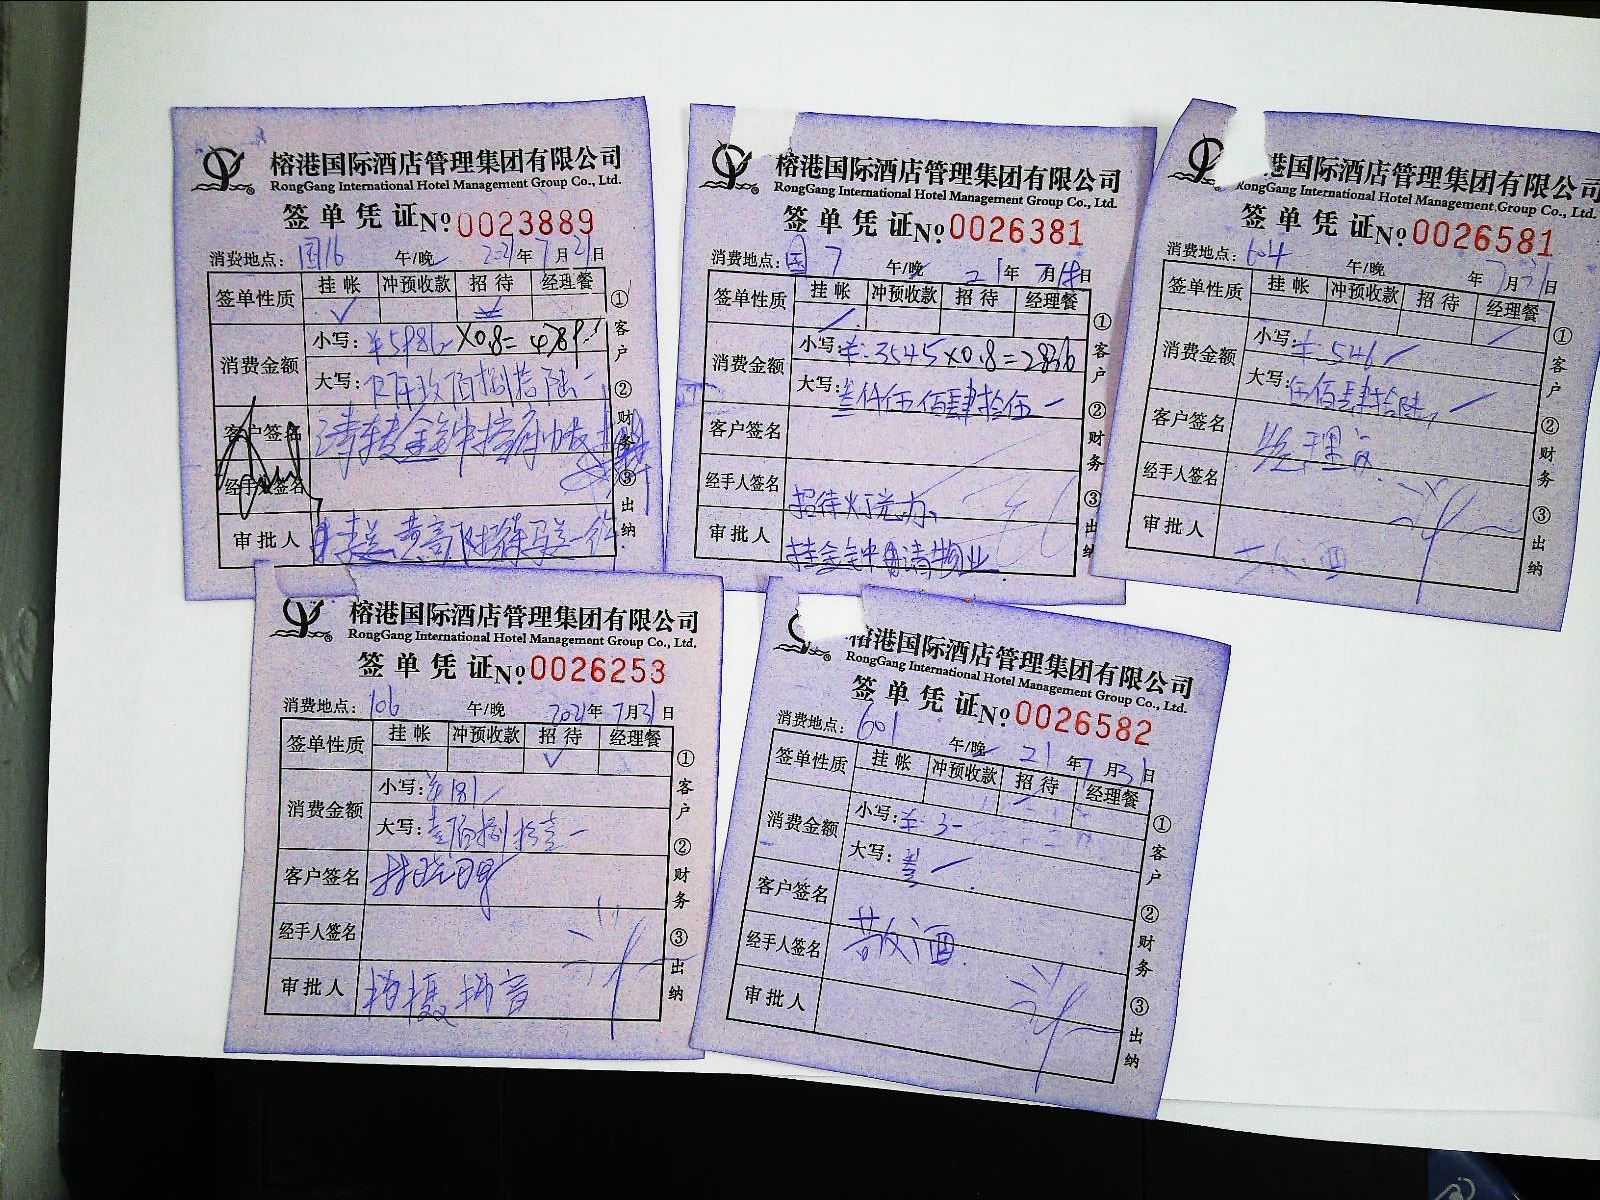 榕港国际酒店管理集团有限公司
RongGang International Hotel Management Group Co., Ltd.
签单凭证No.0023889
消费地点：国16 午/晚 2021年7月21日
签单性质 挂帐 冲预收款 招待 经理餐
消费金额
小写：¥5986 ×0.8=4789
大写：伍仟玖佰捌拾陆
客户签名
经手人签名
审批人
①客户 ②财务 ③出纳
榕港国际酒店管理集团有限公司
RongGang International Hotel Management Group Co., Ltd.
签单凭证No.0026381
消费地点：国7 午/晚 21年7月18日
签单性质 挂帐 冲预收款 招待 经理餐
消费金额
小写：¥:3545×0.8=2836
大写：叁仟伍佰肆拾伍
客户签名
经手人签名 招待灯光办
审批人 挂金钟
①客户 ②财务 ③出纳
港国际酒店管理集团有限公司
RongGang International Hotel Management Group Co., Ltd.
签单凭证No.0026581
消费地点：604 午/晚 年7月31日
签单性质 挂帐 冲预收款 招待 经理餐
消费金额
小写：¥:546
大写：伍佰肆拾陆
客户签名
经手人签名
审批人
①客户 ②财务 ③出纳
榕港国际酒店管理集团有限公司
RongGang International Hotel Management Group Co., Ltd.
签单凭证No.0026253
消费地点：106 午/晚 2021年7月31日
签单性质 挂帐 冲预收款 招待 经理餐
消费金额
小写：¥181
大写：壹佰捌拾壹
客户签名
经手人签名
审批人 拍摄抖音
①客户 ②财务 ③出纳
榕港国际酒店管理集团有限公司
RongGang International Hotel Management Group Co., Ltd.
签单凭证No.0026582
消费地点：601 午/晚 21年7月31日
签单性质 挂帐 冲预收款 招待 经理餐
消费金额
小写：¥:3
大写：叁
客户签名
经手人签名 散酒
审批人
①客户 ②财务 ③出纳